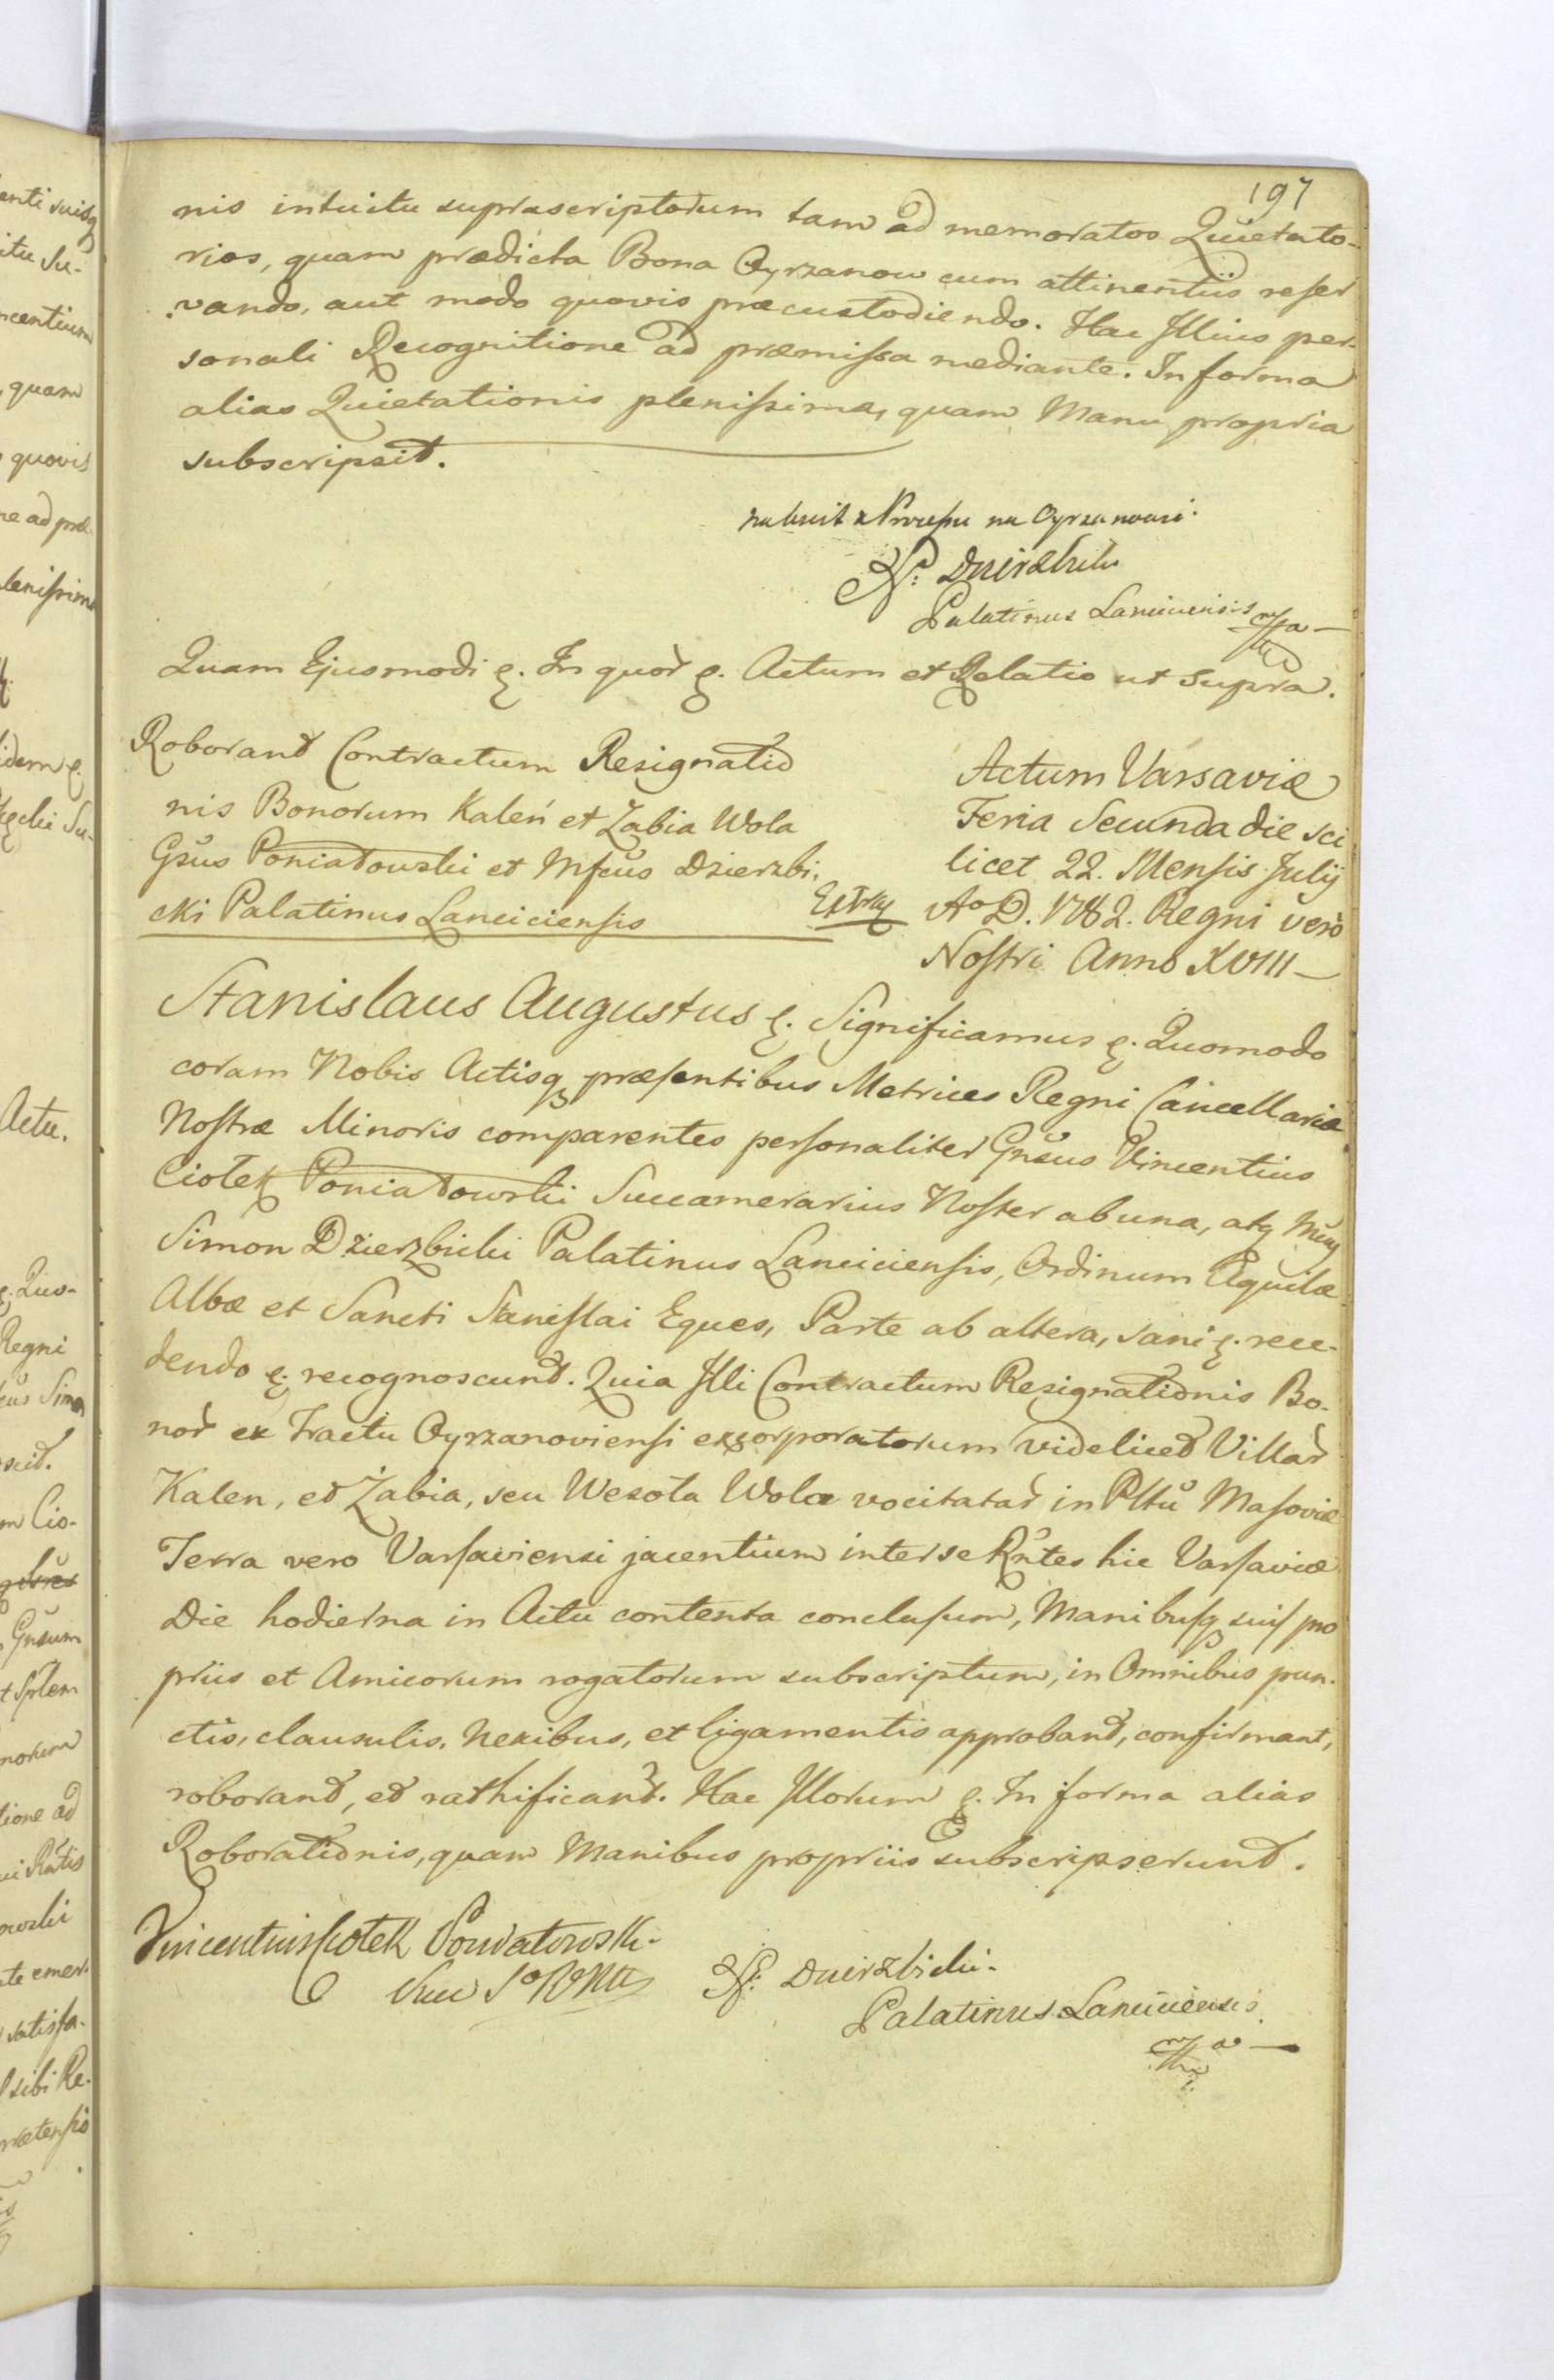 197
nis intuitu suprascriptorum tam ad memoratos Quietato-
rios, quam prædicta Bona Oyrzanow cum attinentiis reser
vando, aut modo quovis præcustodiendo. Hac Illius per-
sonali Recognitione ad præmissa mediante. In forma
alias Quietationis plenissima, quam Manu propria
subscripsit.
na Oyrzanowie.
Palatinus Lanciciensis mpa
Quam Ejusmodi &. In quor &. Actum et Relatio ut Supra.
Roborant Contractum Resignatio
nis Bonorum Kaleń et Zabia Wola
Gsus Poniatowski et Mfcus Dzierzbi-
cki Palatinus Lanciciensis
Actum Varsaviæ
Feria Secunda die sci
licet 22. Mensis Julij
Ao D. 1782. Regni vero
Nostri Anno XVIII
Stanislaus Augustus &. Significamus &. Quomodo
coram Nobis Actisq præsentibus Metrices Regni Cancellariæ
Nostræ Minoris comparentes personaliter Gnsus Vincentius
Ciołek Poniatowski Succamerarius Noster ab una, atq
Simon Dzierzbicki Palatinus Lanciciensis, Ordinum Aquilæ
Albæ et Sancti Stanislai Eques, Parte ab altera, sani &. rece-
dendo &. recognoscunt. Quia Illi Contractum Resignationis Bo-
nor ex Tractu Oyrzanoviensi excorporatorum videlicet Villar
Kalen, et Żabia, seu Wesoła Wola vocitatar in Pltu Masoviæ
Terra vero Varsaviensi jacentium inter se Rntes hic Varsaviæ
Die hodierna in Actu contenta conclusum, Manibusq suis pro
priis et Amicorum rogatorum subscriptum, in Omnibus pun-
ctis, clausulis, nexibus, et ligamentis approbant, confirmant,
roborant, et rathificant. Hac Illorum &. In forma alias
Roborationis, quam Manibus propriis subscripserunt.
Vincentius Ciołek Poniatowski
S. Dzierzbicki
Palatinus Lanciciensis
mpa